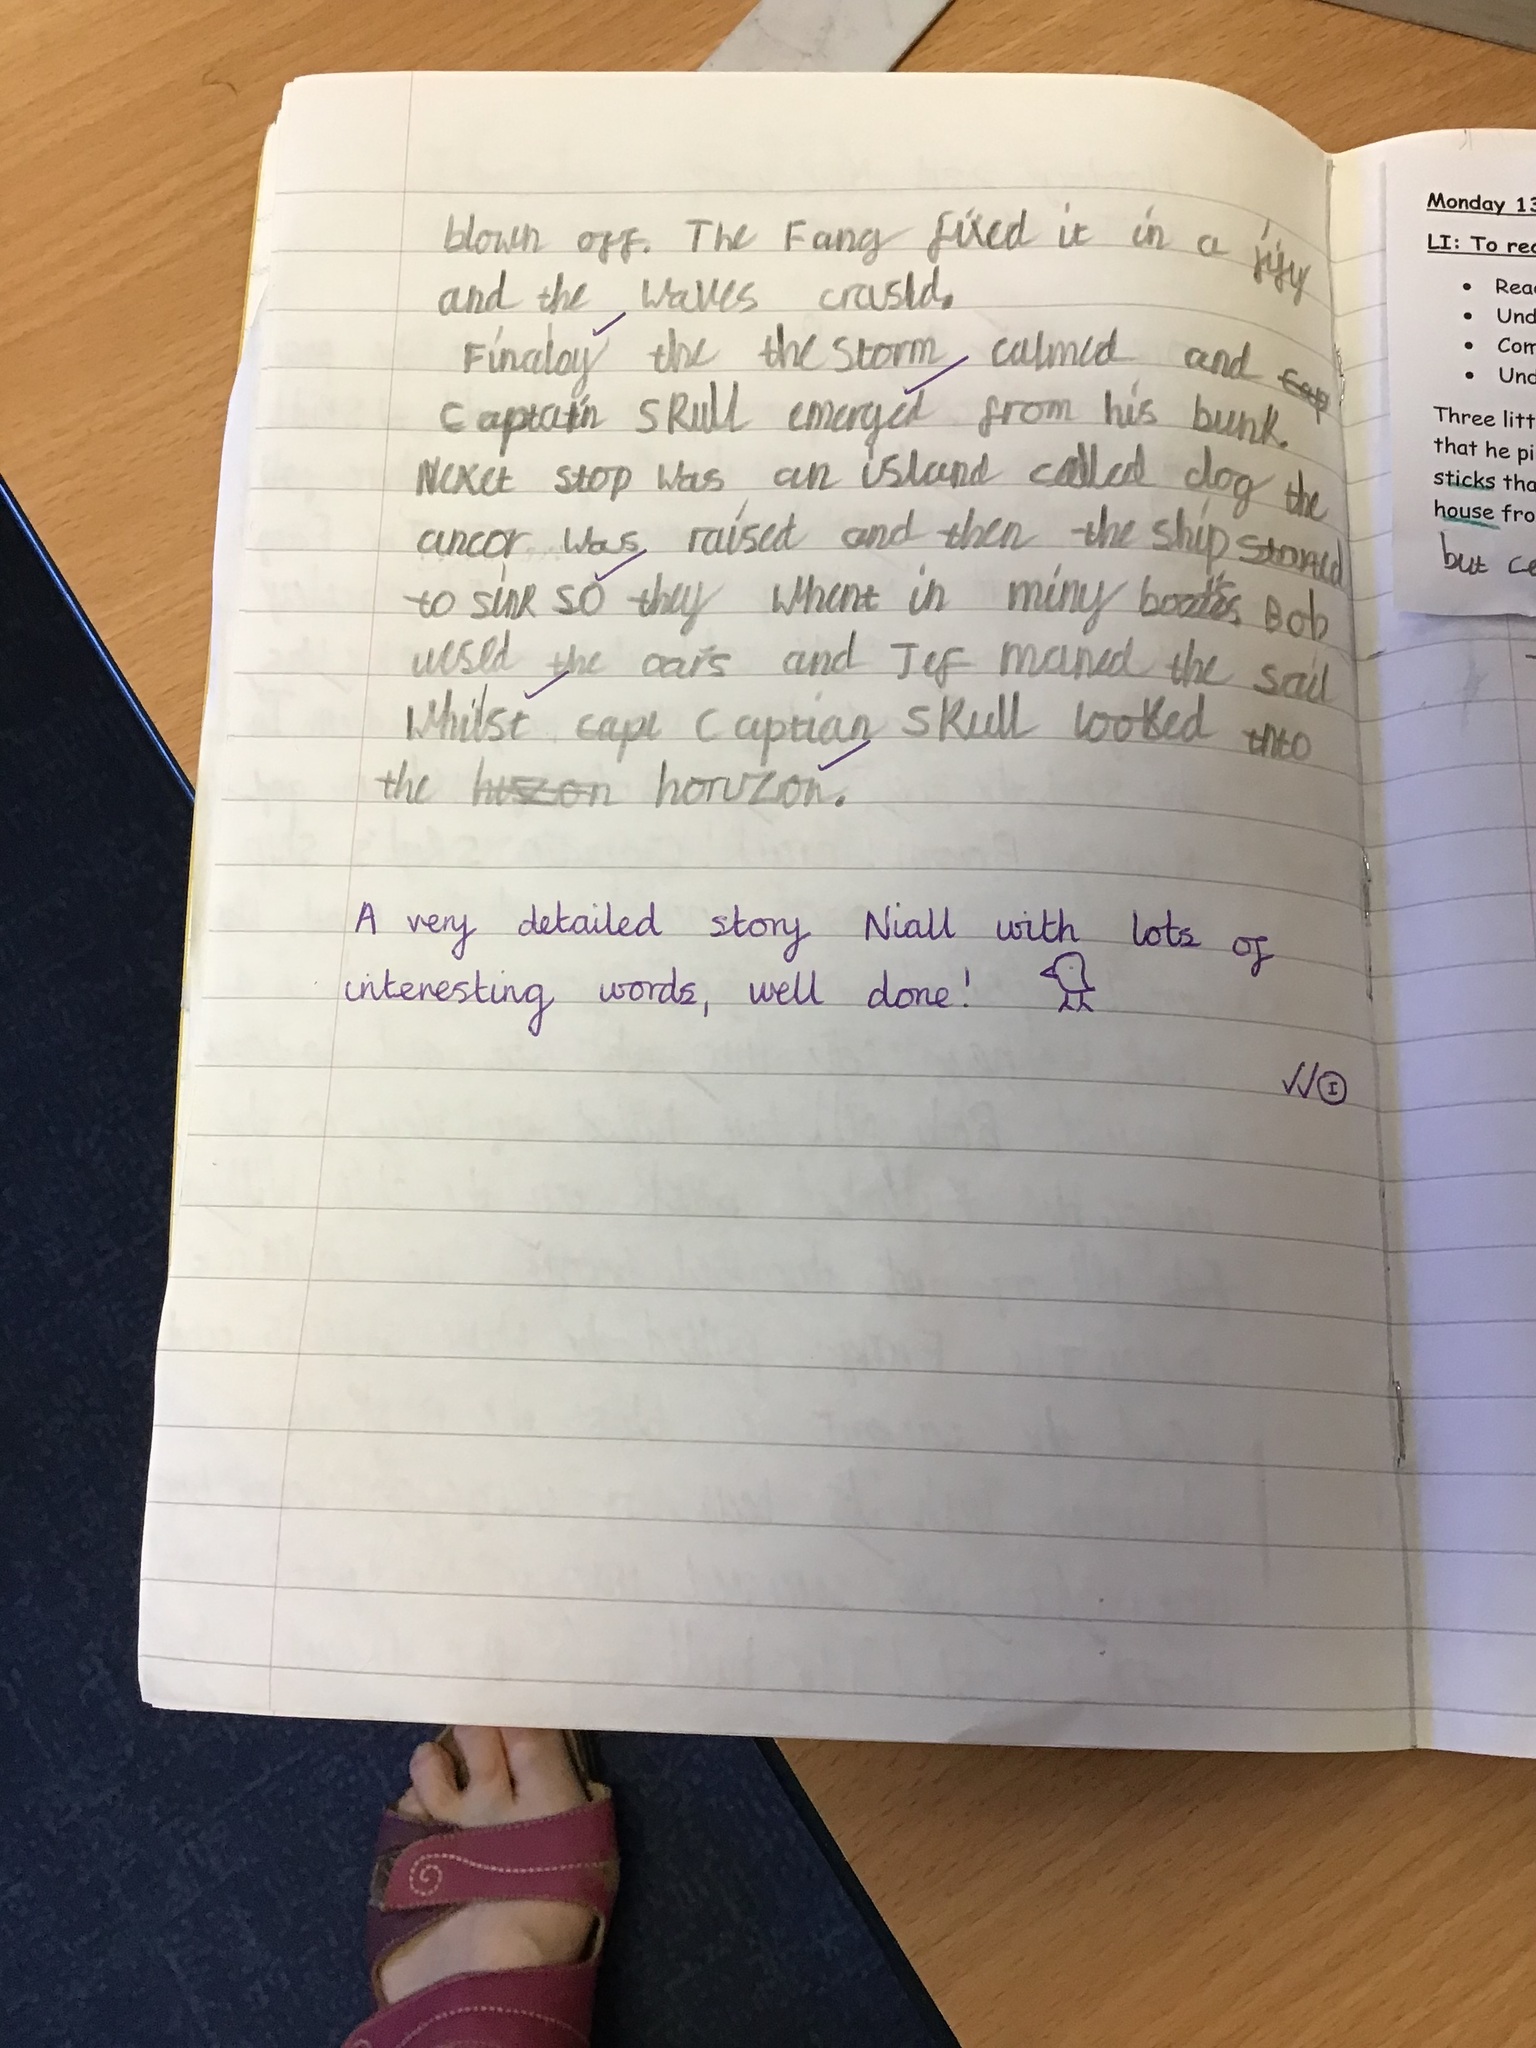 blown off. The Fang fixed it in a jify
and the waves crasld.
Finaloy the the storm calmed and cap
Captain Skull emerged from his bunk.
Nexet stop was an island called dog the
ancor was raised and then the ship started
to sink so they Whent in miny boates Bob
uesed the oars and Jef maned the sail
Whilst cape Captian Skull looked into
the hiszon horizon.
A very detailed story Niall with lots of
interesting words, well done!
I
Monday 13
LI: To rea
Rea
Und
Com
Und
Three litt
that he pi
sticks tha
house fro
but ce